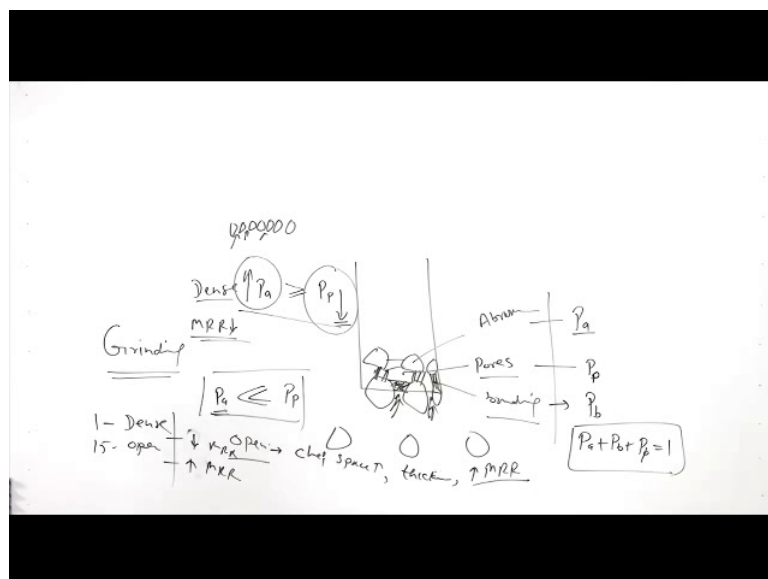 Dense ↑ Pa ≥ Pp ↓
MRR↓
Grinding
Pa << Pp
1- Dense
15- open
↓ MRR
↑ MRR
Open → chip space↑, thicker, ↑ MRR
Pa
Pores — Pp
bonding → Pb
Pa + Pb + Pp = 1